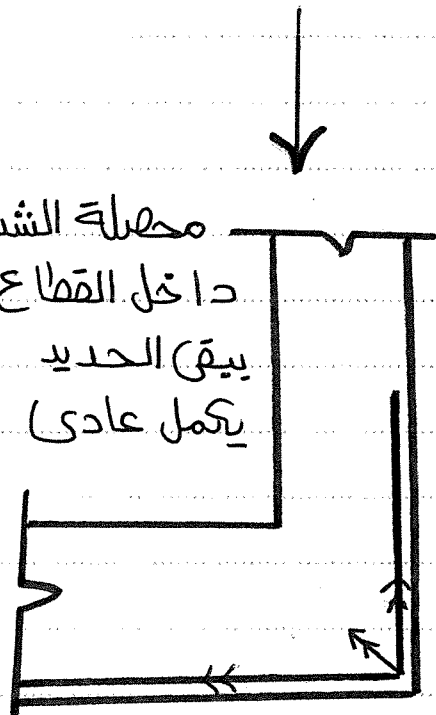 محصلة الشد
داخل القطاع
يبقى الحديد
يكمل عادى